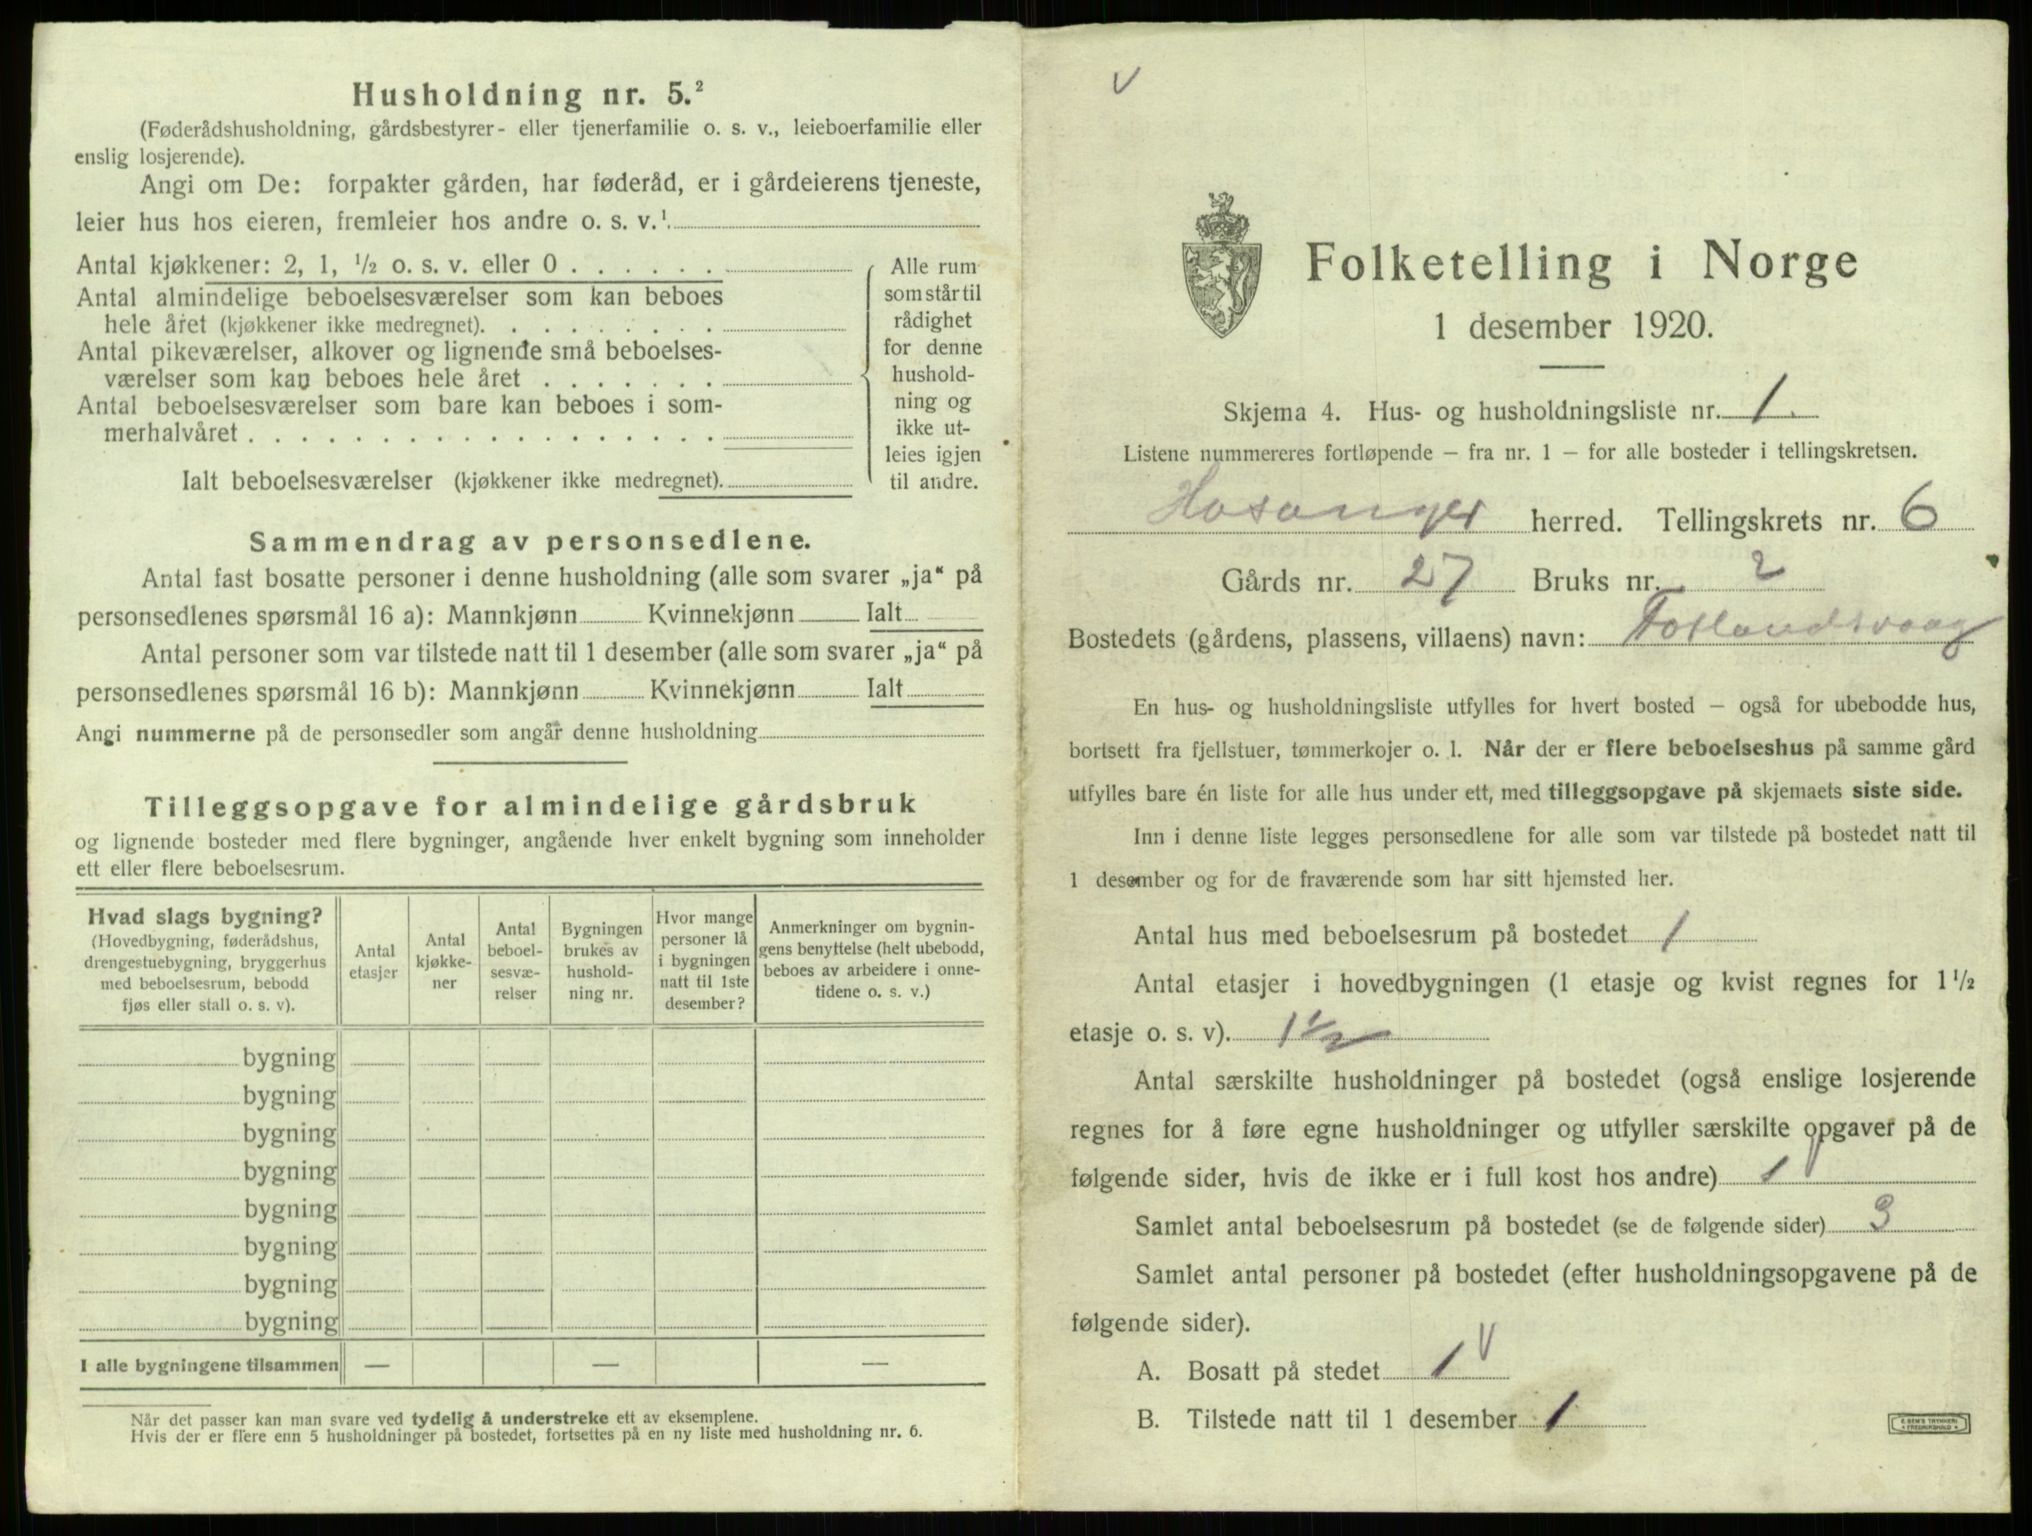 Husholdning nr. 5.²
(Føderådshusholdning, gårdsbestyrer- eller tjenerfamilie o. s. v., leieboerfamilie eller
enslig losjerende).
Angi om De: forpakter gården, har føderåd, er i gårdeierens tjeneste,
leier hus hos eieren, fremleier hos andre o. s. v.¹
Antal kjøkkener: 2, 1, ½ o. s. v. eller 0 . . . . . .
Antal almindelige beboelsesværelser som kan beboes
hele året (kjøkkener ikke medregnet). . . . . . . . .
Antal pikeværelser, alkover og lignende små beboelses-
værelser som kan beboes hele året . . . . . . .
Antal beboelsesværelser som bare kan beboes i som-
merhalvåret . . . . . . . . . . . . . . . . . .
Ialt beboelsesværelser (kjøkkener ikke medregnet).
Alle rum
som står til
rådighet
for denne
hushold-
ning og
ikke ut-
leies igjen
til andre.
Sammendrag av personsedlene.
Antal fast bosatte personer i denne husholdning (alle som svarer „ja“ på
personsedlenes spørsmål 16 a): Mannkjønn Kvinnekjønn Ialt
Antal personer som var tilstede natt til 1 desember (alle som svarer „ja“ på
personsedlenes spørsmål 16 b): Mannkjønn Kvinnekjønn Ialt
Angi nummerne på de personsedler som angår denne husholdning
Tilleggsopgave for almindelige gårdsbruk
og lignende bosteder med flere bygninger, angående hver enkelt bygning som inneholder
ett eller flere beboelsesrum.
Hvad slags bygning?
(Hovedbygning, føderådshus,
drengestuebygning, bryggerhus
med beboelsesrum, bebodd
fjøs eller stall o. s. v).
Antal
etasjer
Antal
kjøkke-
ner
Antal
beboel-
sesvæ-
relser
Bygningen
brukes av
hushold-
ning nr.
Hvor mange
personer lå
i bygningen
natt til 1ste
desember?
Anmerkninger om bygnin-
gens benyttelse (helt ubebodd,
beboes av arbeidere i onne-
tidene o. s. v.)
bygning
bygning
bygning
bygning
bygning
bygning
bygning
bygning
I alle bygningene tilsammen — — —
Når det passer kan man svare ved tydelig å understreke ett av eksemplene.
Hvis der er flere enn 5 husholdninger på bostedet, fortsettes på en ny liste med husholdning nr. 6.
v
Folketelling i Norge
1 desember 1920.
Skjema 4. Hus- og husholdningsliste nr. 1.
Listene nummereres fortløpende — fra nr. 1 — for alle bosteder i tellingskretsen.
Hosanger herred. Tellingskrets nr. 6
Gårds nr. 27 Bruks nr. 2
Bostedets (gårdens, plassens, villaens) navn: Fotlandsvaag
En hus- og husholdningsliste utfylles for hvert bosted — også for ubebodde hus,
bortsett fra fjellstuer, tømmerkojer o. l. Når der er flere beboelseshus på samme gård
utfylles bare én liste for alle hus under ett, med tilleggsopgave på skjemaets siste side.
Inn i denne liste legges personsedlene for alle som var tilstede på bostedet natt til
1 desember og for de fraværende som har sitt hjemsted her.
Antal hus med beboelsesrum på bostedet 1
Antal etasjer i hovedbygningen (1 etasje og kvist regnes for 1½
etasje o. s. v). 1½
Antal særskilte husholdninger på bostedet (også enslige losjerende
regnes for å føre egne husholdninger og utfyller særskilte opgaver på de
følgende sider, hvis de ikke er i full kost hos andre) 1 v
Samlet antal beboelsesrum på bostedet (se de følgende sider) 3
Samlet antal personer på bostedet (efter husholdningsopgavene på de
følgende sider).
A. Bosatt på stedet 1 v
B. Tilstede natt til 1 desember 1
E. SEM'S TRYKKERI
FREDRIKSHALD